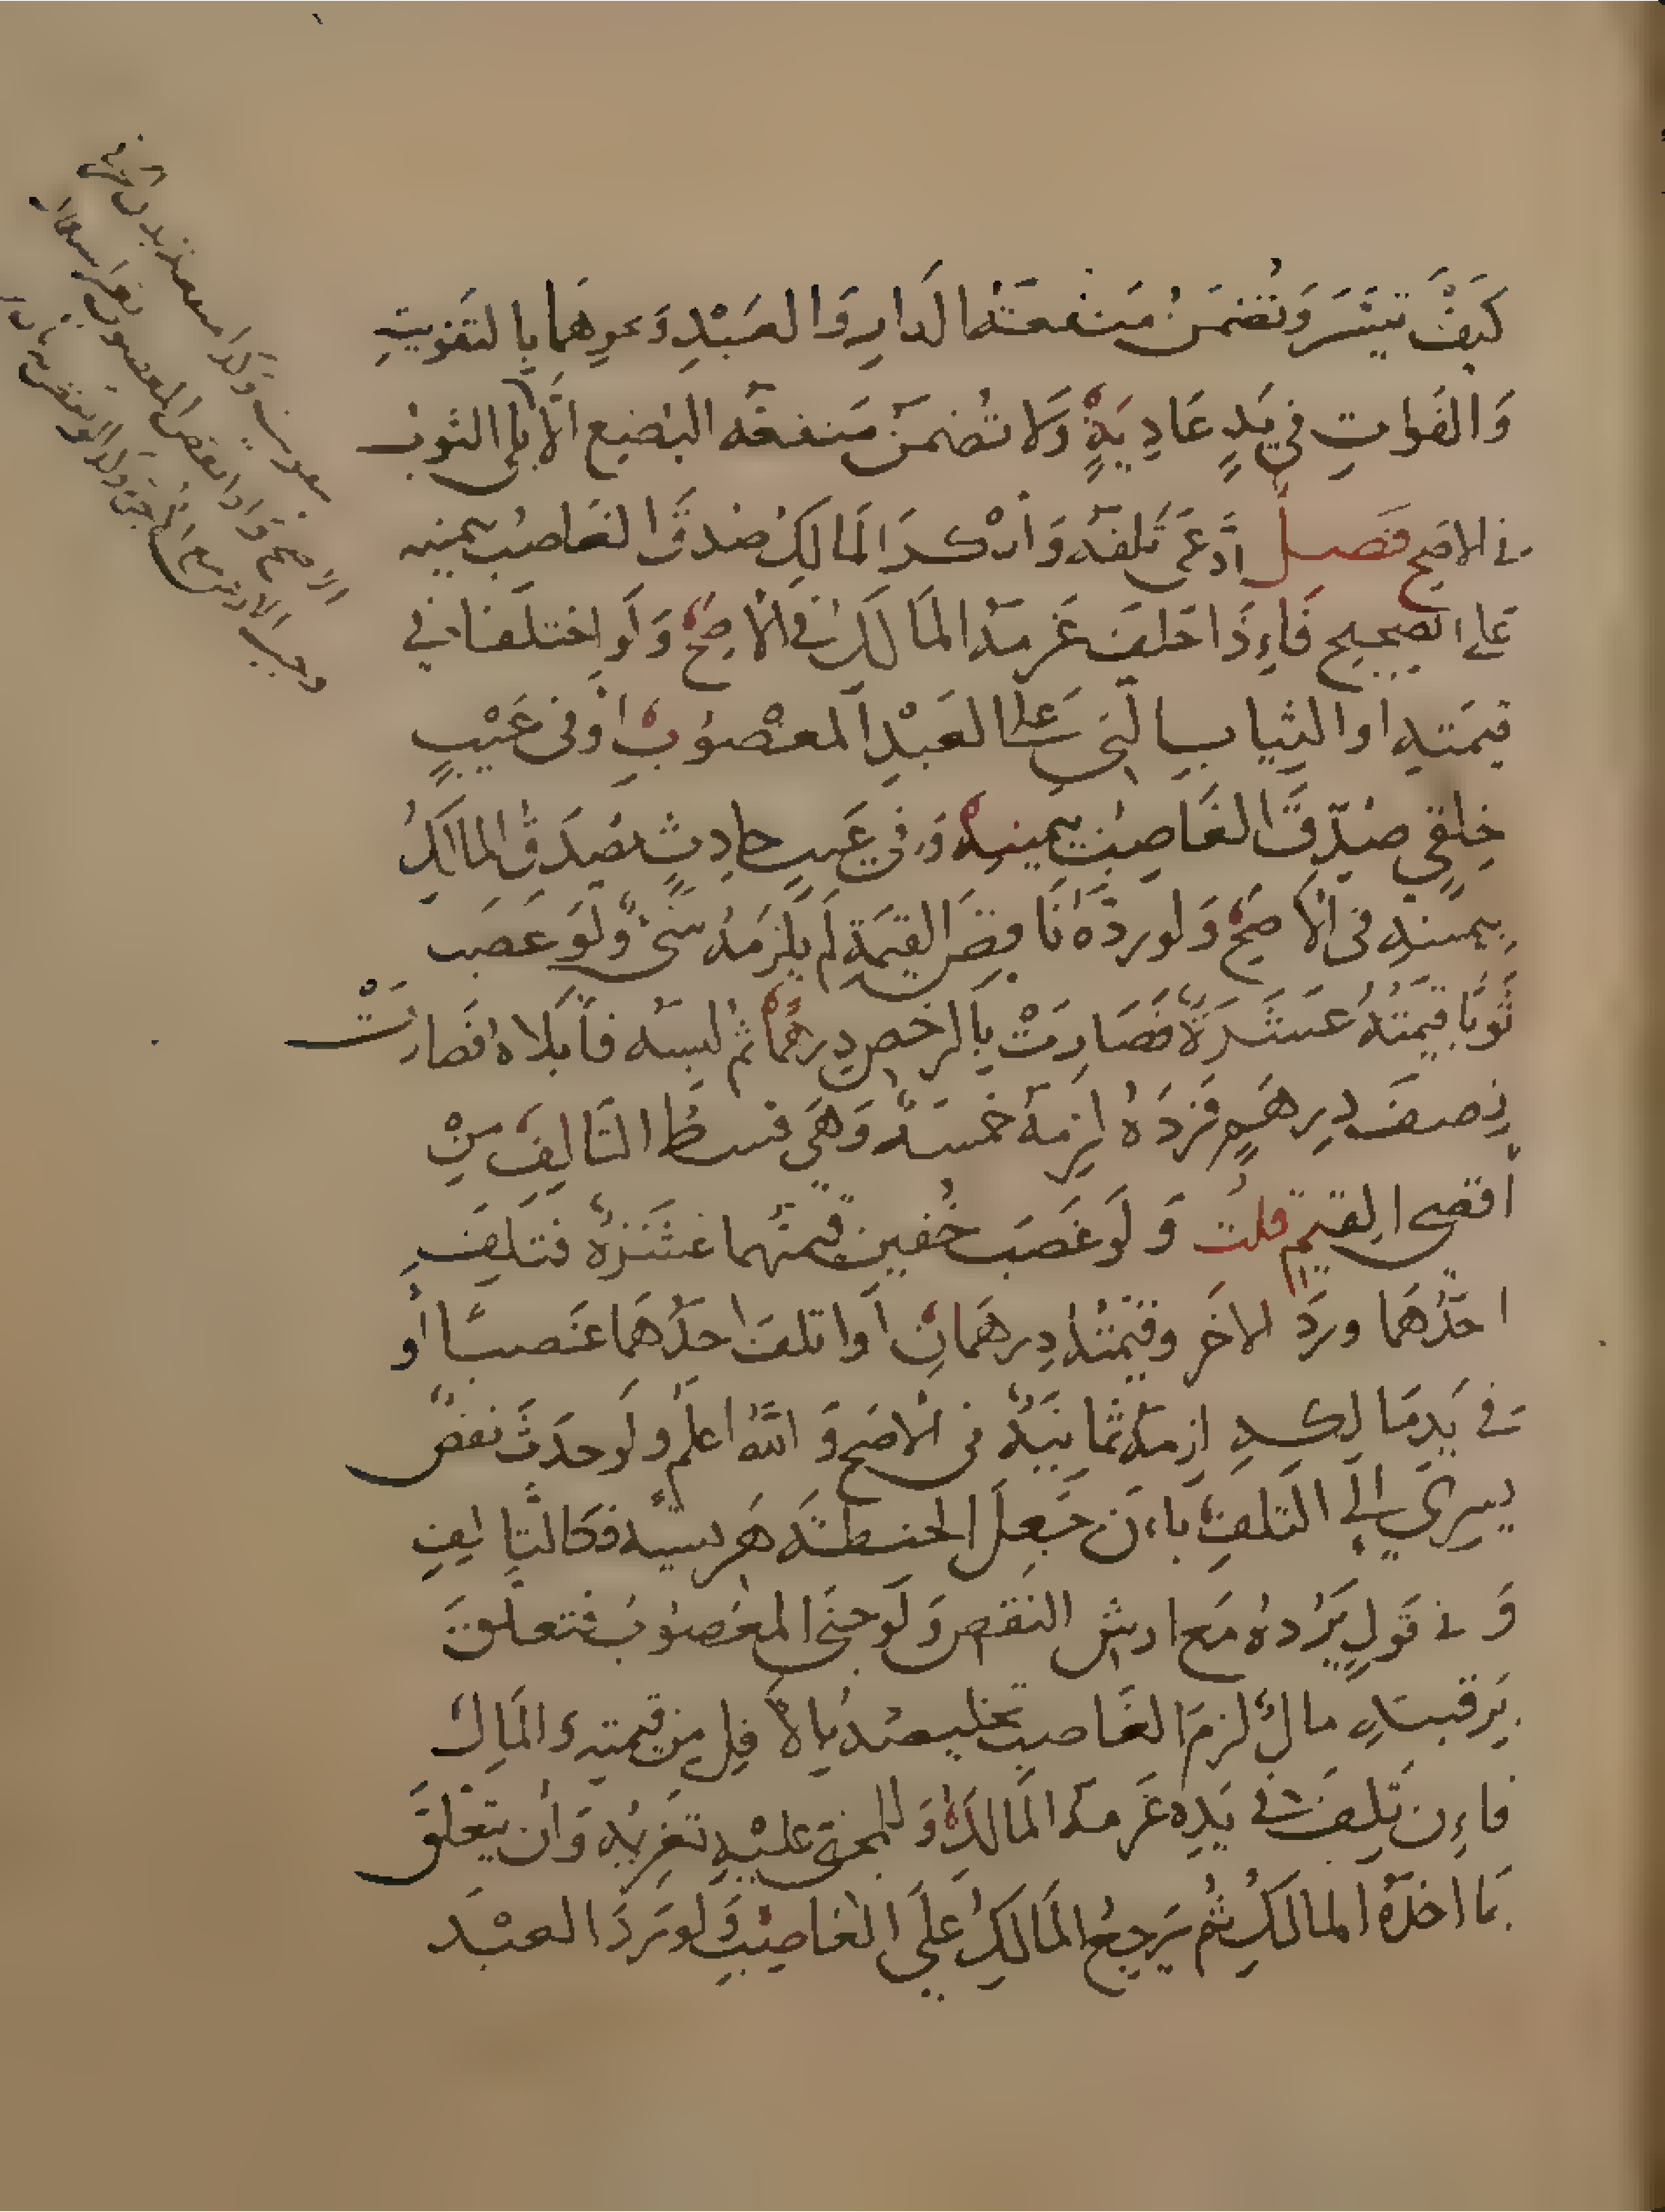 كَيْفَ تيَسَّرَ وَتُضمَنُ مَنفعَتُه الدارِ وَالعَبْدِ وَنحوِهمَا بِالتفويتِ
وَالفَواتِ في يَدٍ عَادِيَةٍ وَلا تُضمَنُ مَنفعَه البُضع الّا بل الثوب
في الاصح فَصل ادَّعَى تَلفَه وَانْكرَ المَالِكُ صُدقَ الغَاصِب بيمينه
على الصحيح فَاءِذَا حَلفَ غَرمَه المَالكُ في الأصَحِّ وَلَو اختلفَا في
قيمَتهِ او الثيابِ التى عَلى العَبْدِ المغْصوُبِ اوْ فى عَيْبٍ
خِلقيٍ صُدِّقَ الغَاصِبُ بِيَمينهِ وَفى عَيبٍ حادِثٍ يصُدَقُ المَالكُ
بيمينهِ فى الأصَحِّ وَلو ردَّهُ نَاقِصَ القيمَةِ لَم يلزمَهُ شَىْءٌ وَلَو غصَب
ثَوبًا قيمَتُهُ عَشَرَةٌ فَصَارتْ بِالرخصِ دِرهَمًا ثم لبسَه فأبلاهُ فصَارتْ
نِصفَ دِرهَمٍ فردَهُ لزمَهُ خمسَةٌ وَهَي قسطُ التَالفِ مِنْ
أقصى القيمِ قلتُ وَلَو غَصَبَ خُفين قيمتُهما عَشَرَةٌ فتلِفَ
احدُهُمَا وردَّ الاخَر وقيمَتُه دِرهَمانِ أوا تلفَ احدَهُمَا غَصبًا أو
في يَدِ مَالِكهِ لزمَهُ ثمَانيَةٌ فى الاصَحِ وَاللَّهُ اعلم ولَو حدَثَ نقصٌ
يسرِي إلَى التلفِ باءَن جَعلَ الحنطَة هَريسَه فكالتَالِفِ
وَفي قَولٍ يَرُدهُ مَع ارشِ النَقصِ وَلَو جنَى المغصُوبُ فتعلقَ
بِرقبتهِ مالٌ لزمَ الغَاصب تخليصُهُ بِالأقلِ مِن قيمته وَالمَال
فاءِن تَلِفَ في يَدِه غَرمَه المَالكُ وَللمجنى عليْهِ تَغريمُه وَأن يتعْلقَ
بمَا اخذهُ المالكُ ثُم يَرجعُ المَالكُ عَلَى الغاصِبِ وَلو رَدَ العبْدَ